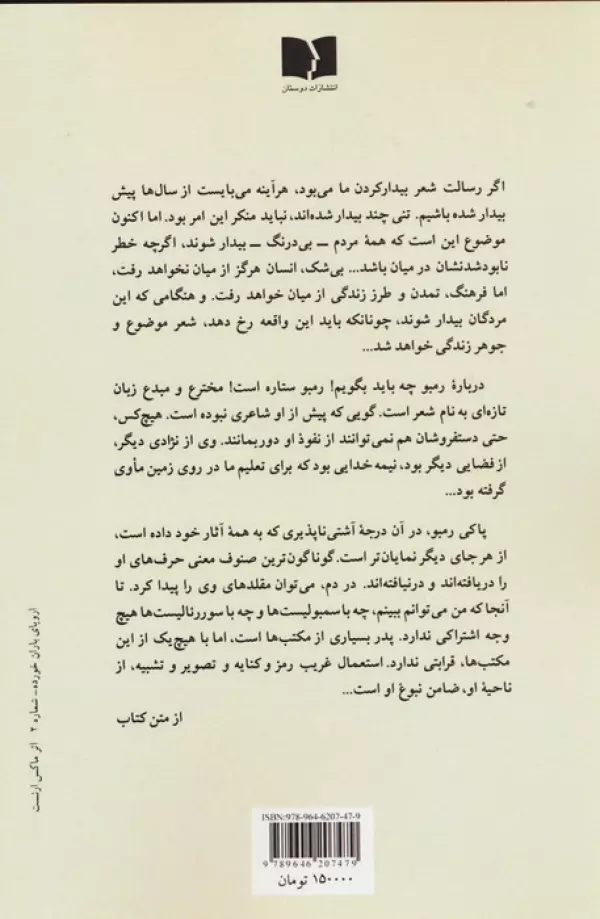 انتشارات دوستان
اگر رسالت شعر بیدارکردن ما می‌بود، هرآینه می‌بایست از سال‌ها پیش
بیدار شده باشیم. تنی چند بیدار شده‌اند، نباید منکر این امر بود. اما اکنون
موضوع این است که همهٔ مردم ــ بی‌درنگ ــ بیدار شوند، اگرچه خطر
نابودشدنشان در میان باشد... بی‌شک، انسان هرگز از میان نخواهد رفت،
اما فرهنگ، تمدن و طرز زندگی از میان خواهد رفت. و هنگامی که این
مردگان بیدار شوند، چونانکه باید این واقعه رخ دهد، شعر موضوع و
جوهر زندگی خواهد شد...
دربارهٔ رمبو چه باید بگویم! رمبو ستاره است! مخترع و مبدع زبان
تازه‌ای به نام شعر است. گویی که پیش از او شاعری نبوده است. هیچ‌کس،
حتی دستفروشان هم نمی‌توانند از نفوذ او دور بمانند. وی از نژادی دیگر،
از فضایی دیگر بود، نیمه خدایی بود که برای تعلیم ما در روی زمین مأوی
گرفته بود...
پاکی رمبو، در آن درجهٔ آشتی‌ناپذیری که به همهٔ آثار خود داده است،
از هر جای دیگر نمایان‌تر است. گوناگون‌ترین صنوف معنی حرف‌های او
را دریافته‌اند و درنیافته‌اند. در دم، می‌توان مقلدهای وی را پیدا کرد. تا
آنجا که من می‌توانم ببینم، چه با سمبولیست‌ها و چه با سوررئالیست‌ها هیچ
وجه اشتراکی ندارد. پدر بسیاری از مکتب‌ها است، اما با هیچ‌یک از این
مکتب‌ها، قرابتی ندارد. استعمال غریب رمز و کنایه و تصویر و تشبیه، از
ناحیهٔ او، ضامن نبوغ او است...
از متن کتاب
اروپای باران خورده - شماره ۲ اثر ماکس ارنست
ISBN:978-964-6207-47-9
9 789646 207479
۱۵۰۰۰۰ تومان